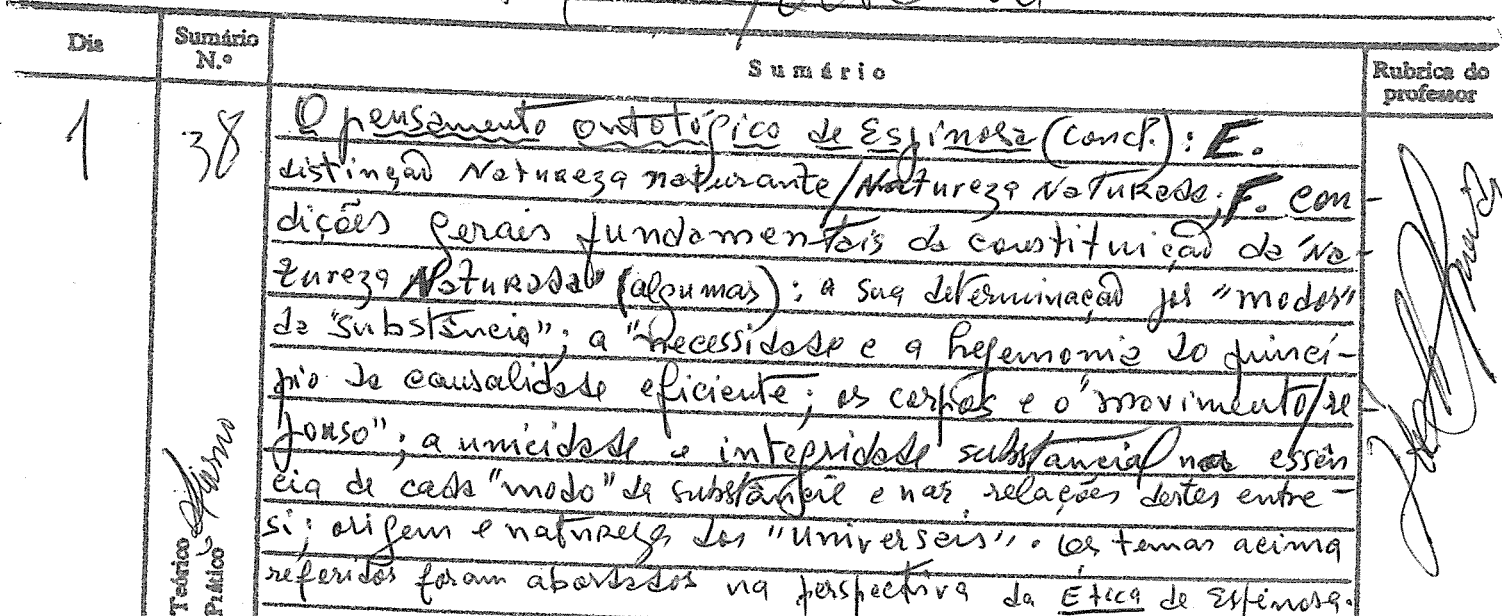 Dia
Sumário
N.º
Sumário
Rubrica do
professor
1
38
O pensamento ontológico de Espinosa (concl.): E.
distinção Natureza naturante/Natureza Naturada; F. con-
dições gerais fundamentais da constituição da "Na-
tureza Naturada" (algumas): a sua determinação por "modos"
da "substância"; a "necessidade e a hegemonia do princí-
pio da causalidade eficiente; os corpos e o "movimento/re-
pouso"; a unicidade e integridade substancial na essên
cia de cada "modo" da substância e nas relações destes entre-
si; origem e natureza dos "universais". Os temas acima
referidos foram abordados na perspectiva da Ética de Espinosa.
Teórico
Prático